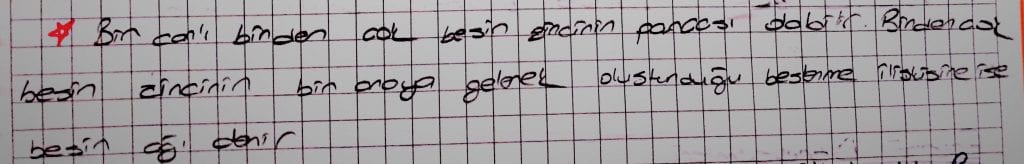 Bir canlı binden çok besin zincirinin parçası olabilir. Birden çok
besin zincirinin bir araya gelerek oluşturduğu beslenme ilişkisine ise
besin ağı denir